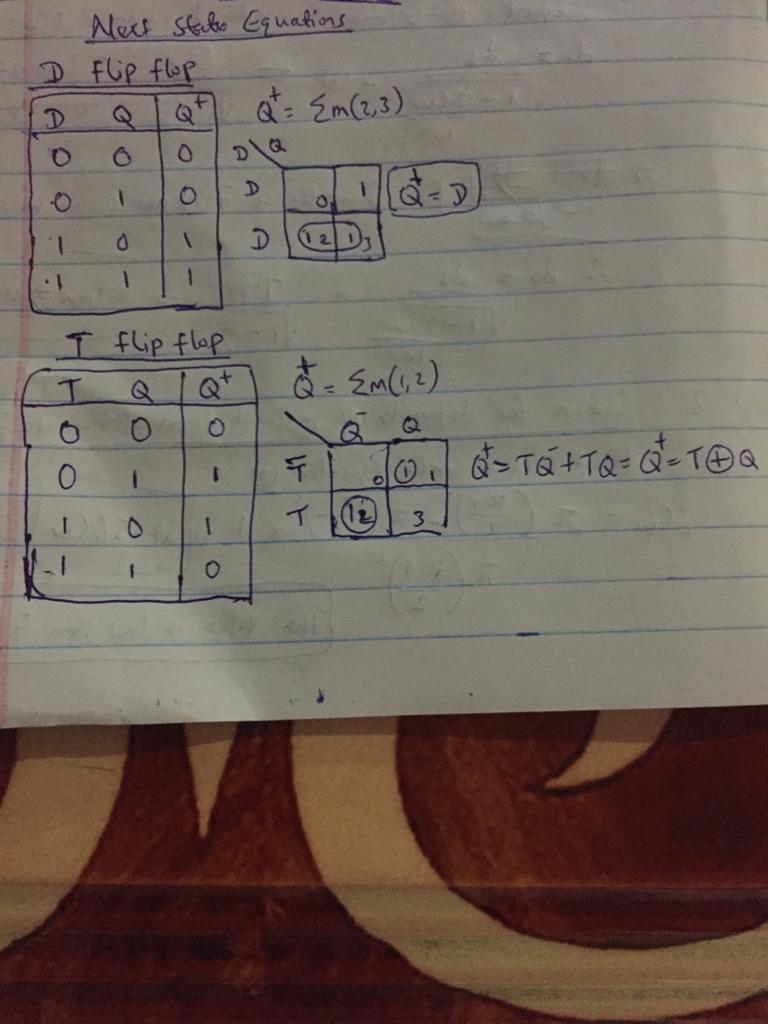 Next State Equations
D flip flop
D Q Q⁺
0 0 0
0 1 0
1 0 1
1 1 1
Q⁺ = Σm(2,3)
D \ Q
D 0 1
D 1 2 1 3
Q⁺ = D
T flip flop
T Q Q⁺
0 0 0
0 1 1
1 0 1
1 1 0
Q⁺ = Σm(1,2)
Q̄ Q
T̄ 0 1 1
T 1 2 3
Q⁺ = TQ̄ + TQ = Q⁺ = T ⊕ Q